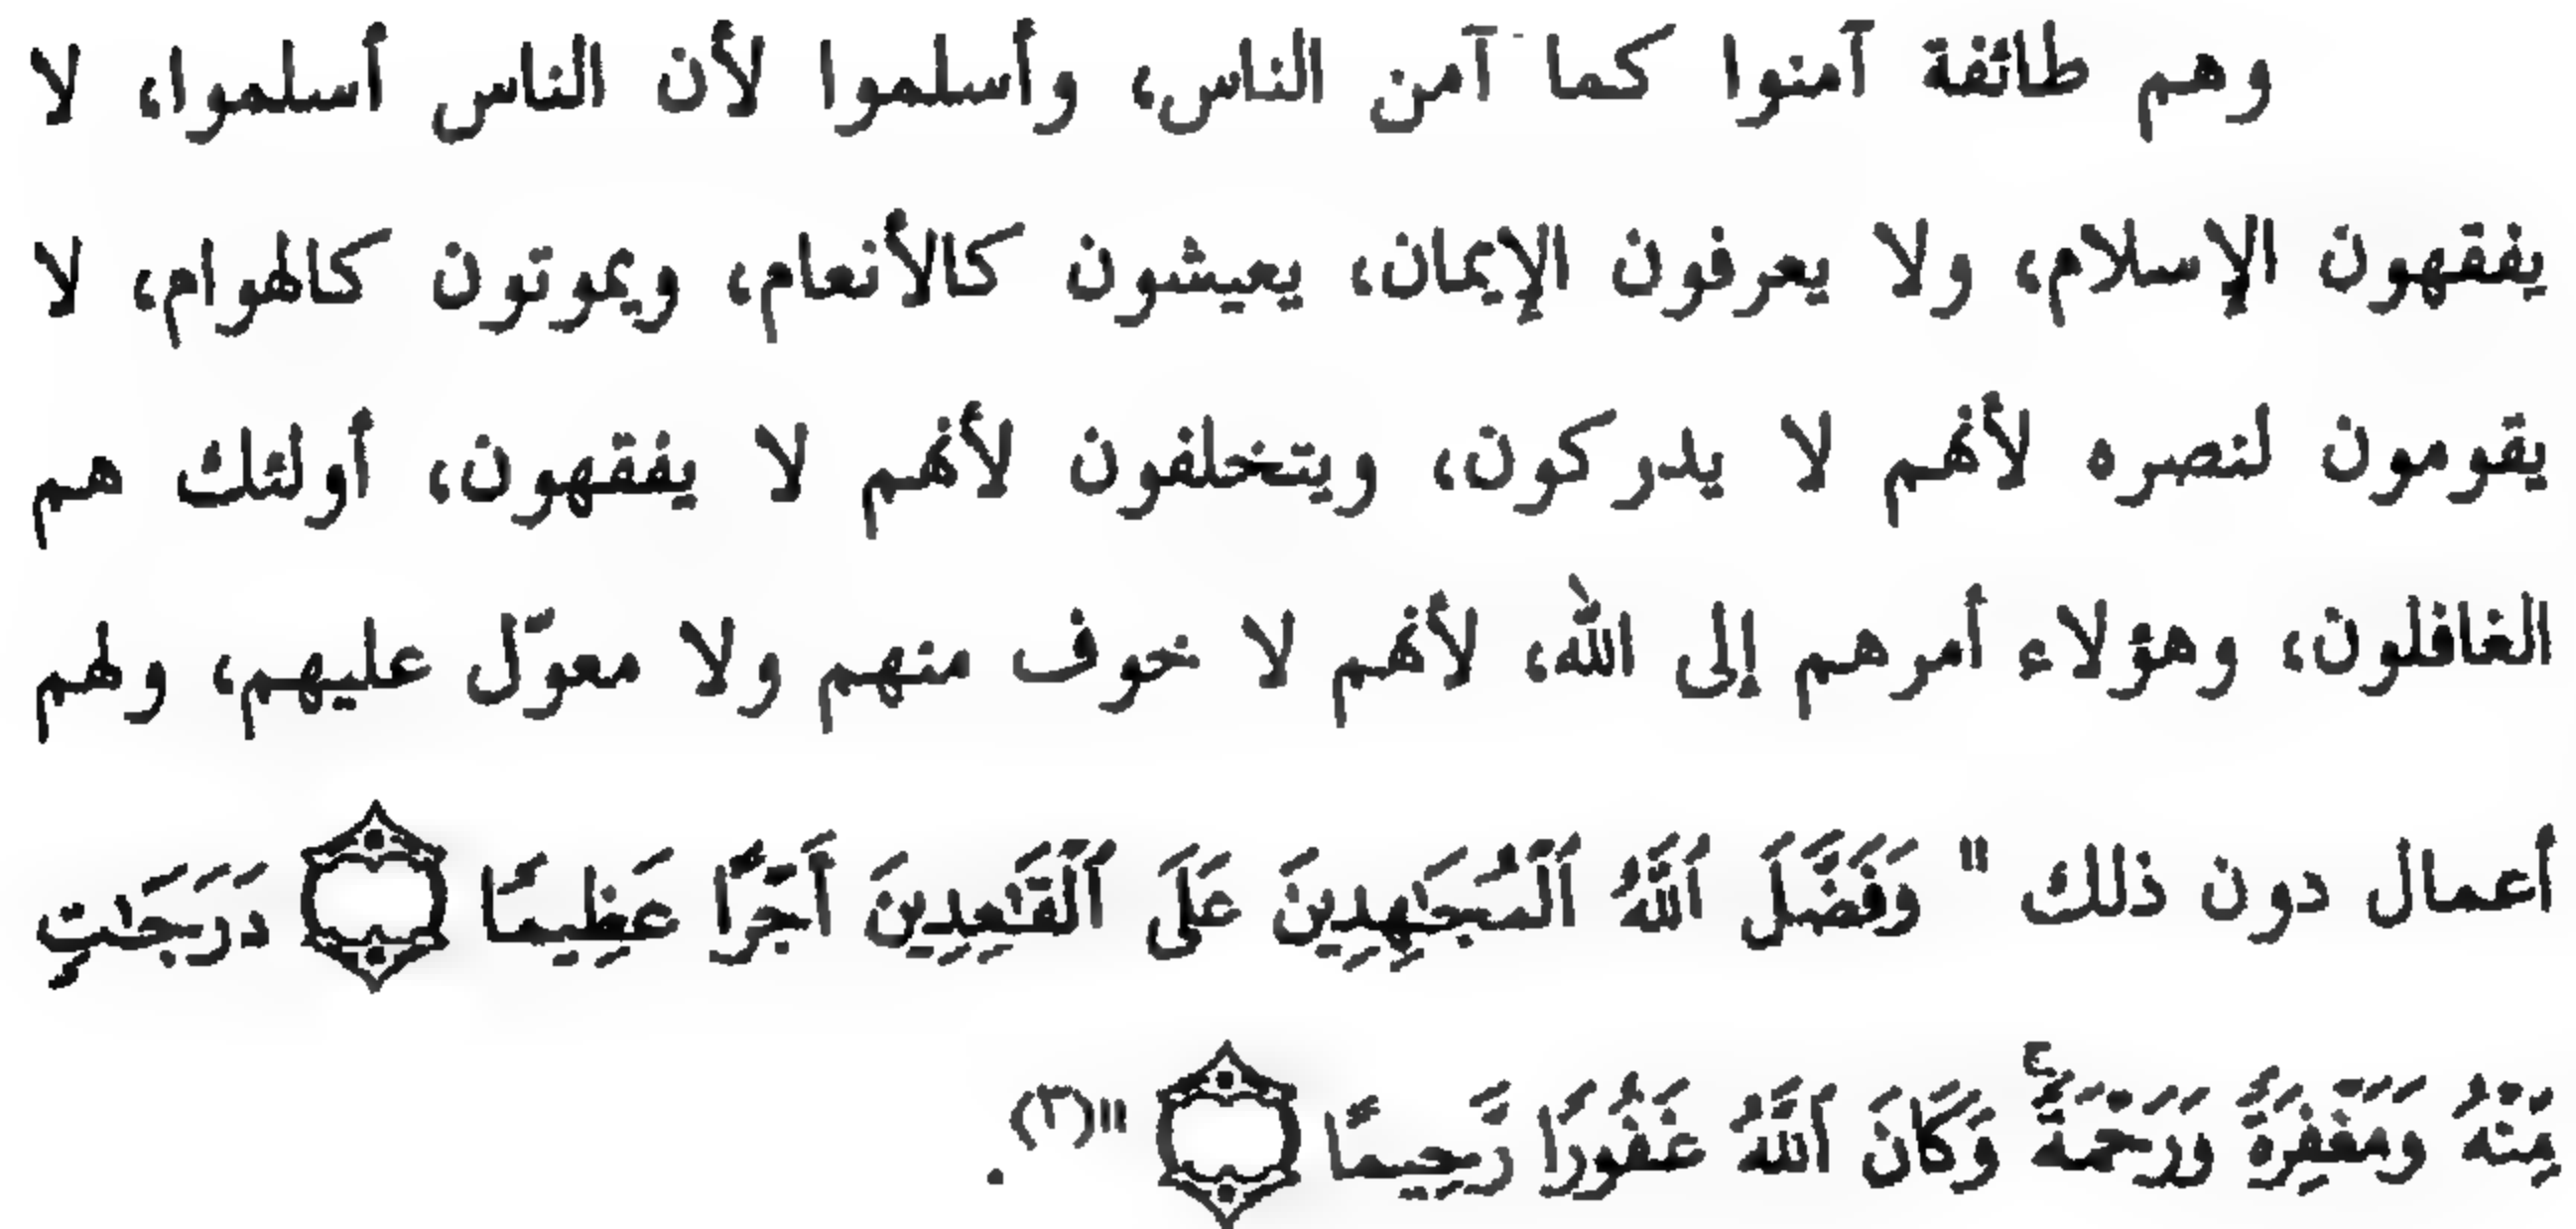 وهم طائفة آمنوا كما آمن الناس، وأسلموا لأن الناس أسلموا، لا
يفقهون الإسلام، ولا يعرفون الإيمان، يعيشون كالأنعام، ويموتون كالهوام، لا
يقومون لنصره لأنهم لا يدركون، ويتخلفون لأنهم لا يفقهون، أولئك هم
الغافلون، وهؤلاء أمرهم إلى الله، لأنهم لا خوف منهم ولا معوّل عليهم، ولهم
أعمال دون ذلك " وَفَضَّلَ ٱللَّهُ ٱلْمُجَـٰهِدِينَ عَلَى ٱلْقَـٰعِدِينَ أَجْرًا عَظِيمًا ۝ دَرَجَـٰتٍ
مِّنْهُ وَمَغْفِرَةً وَرَحْمَةً ۚ وَكَانَ ٱللَّهُ غَفُورًا رَّحِيمًا ۝ "(٢).